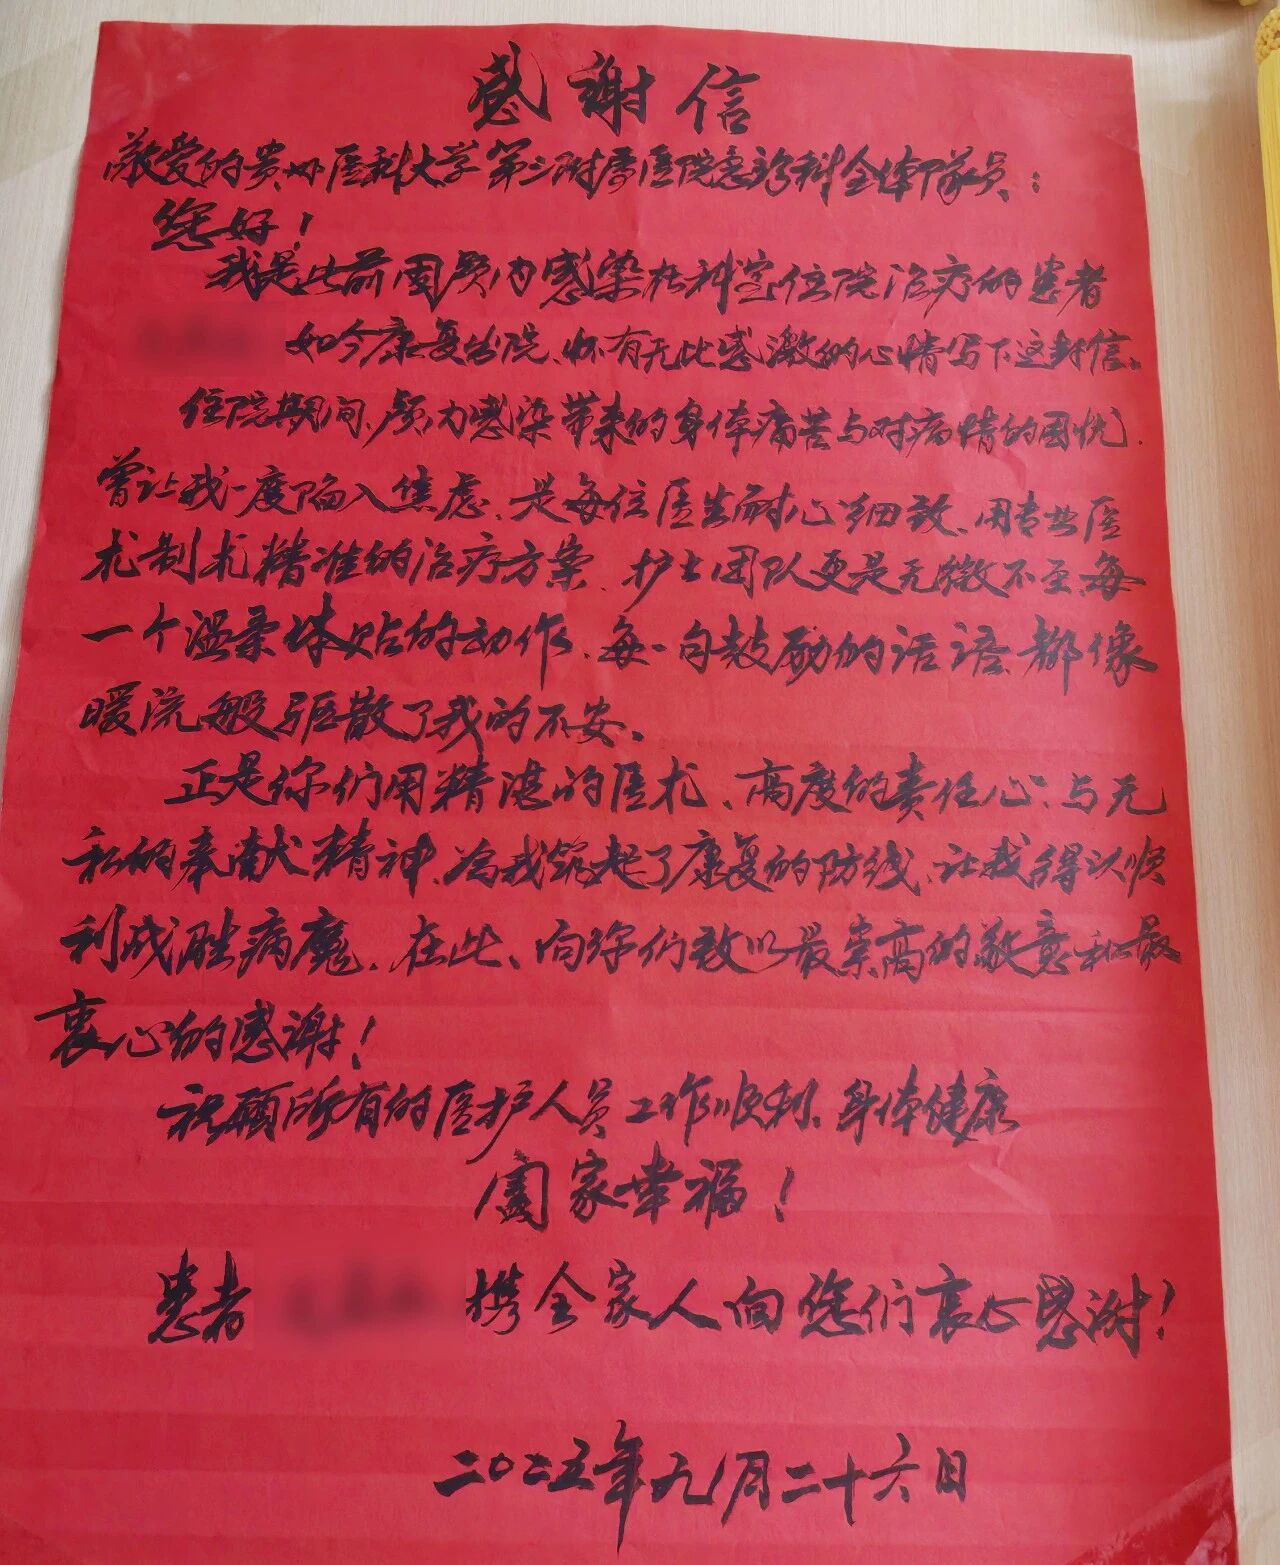 感谢信
敬爱的贵州医科大学第三附属医院急诊科全体队员：
您好！
我是此前因颅内感染在科室住院治疗的患者
如今康复出院、怀有无比感激的心情写下这封信。
住院期间、颅内感染带来的身体痛苦与对病情的困忧、
曾让我一度陷入焦虑、是每位医生耐心细致、用专业医
术制术精准的治疗方案、护士团队更是无微不至、每
一个温柔体贴的动作、每一句鼓励的话语、都像
暖流般驱散了我的不安。
正是你们用精湛的医术、高度的责任心、与无
私的奉献精神、为我筑起了康复的防线、让我得以顺
利战胜病魔、在此、向你们致以最崇高的敬意和最
衷心的感谢！
祝愿所有的医护人员工作顺利、身体健康
阖家幸福！
患者 携全家人向您们衷心感谢！
二〇二五年九月二十六日